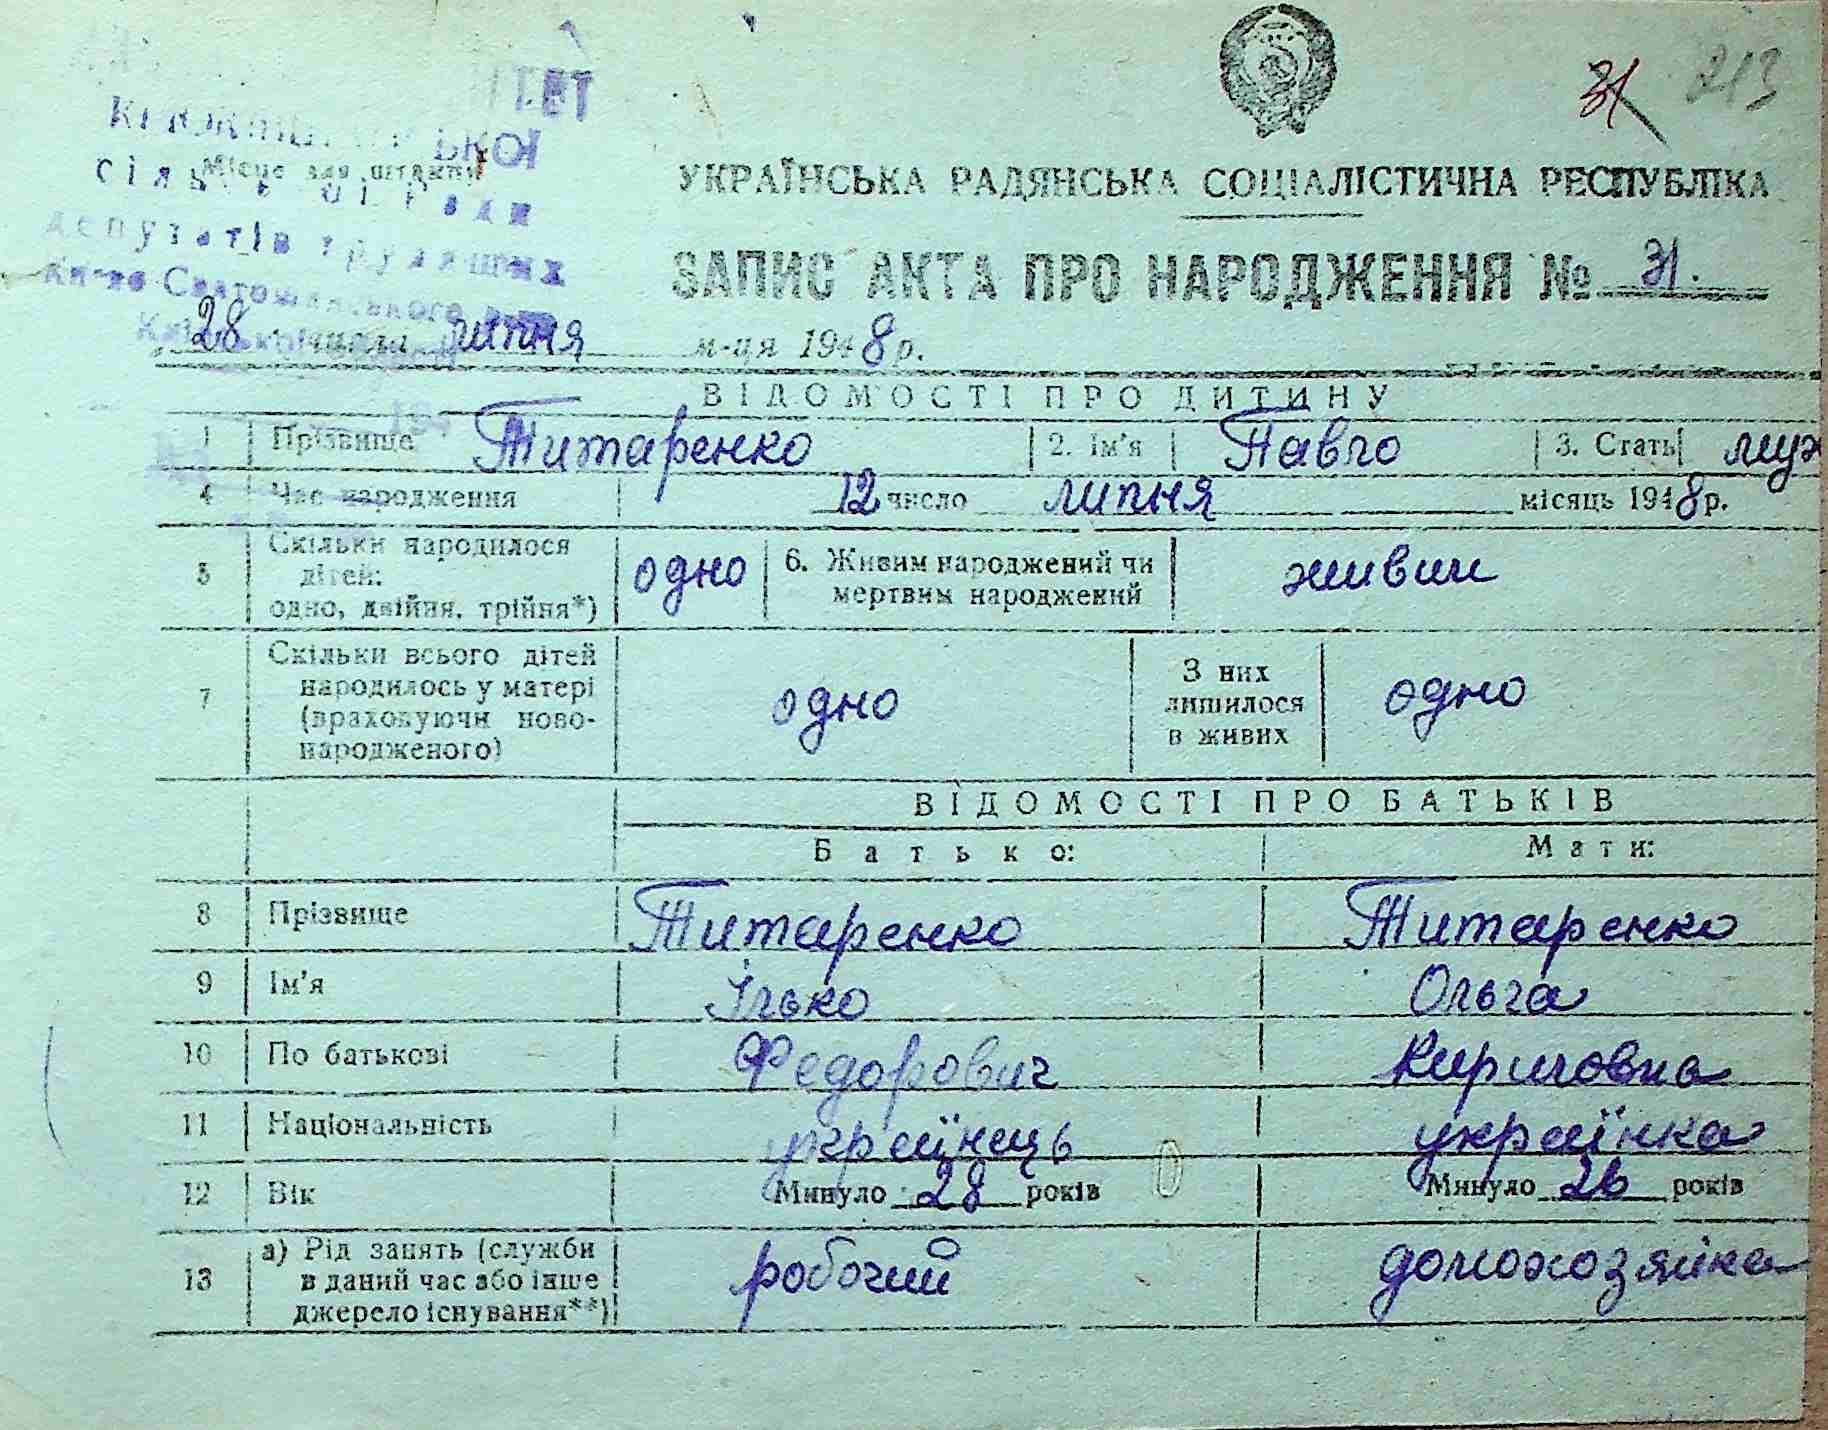 31 213
УКРАЇНСЬКА РАДЯНСЬКА СОЦІАЛІСТИЧНА РЕСПУБЛІКА
Місце для штампу
депутатів трудящих
ЗАПИС АКТА ПРО НАРОДЖЕННЯ № 31.
28 числа липня м-ця 1948 р.
ВІДОМОСТІ ПРО ДИТИНУ
1 Прізвище Титаренко 2. Ім'я Павло 3. Стать муж
4 Час народження 12 число липня місяць 1948 р.
5 Скільки народилося дітей: одно, двійня, трійня*) одно 6. Живим народжений чи мертвим народжений живим
7 Скільки всього дітей народилось у матері (враховуючи ново-народженого) одно З них лишилося в живих одно
ВІДОМОСТІ ПРО БАТЬКІВ
Батько: Мати:
8 Прізвище Титаренко Титаренко
9 Ім'я Ілько Ольга
10 По батькові Федорович Кириловна
11 Національність українець українка
12 Вік Минуло 28 років Минуло 26 років
13 а) Рід занять (служби в даний час або інше джерело існування**) робочий домохозяйка